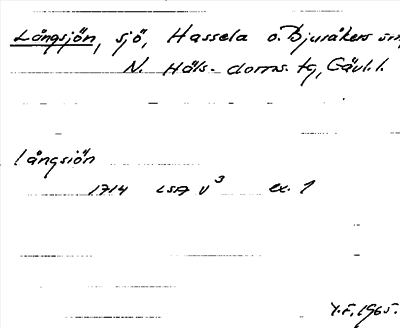 Långsjön, sjö, Hassela o. Bjuråkers snr,
N. Häls. doms. tg, Gävl. l.
långsiön
1714 LSA V³ ex. 1
Y.F. 1965.